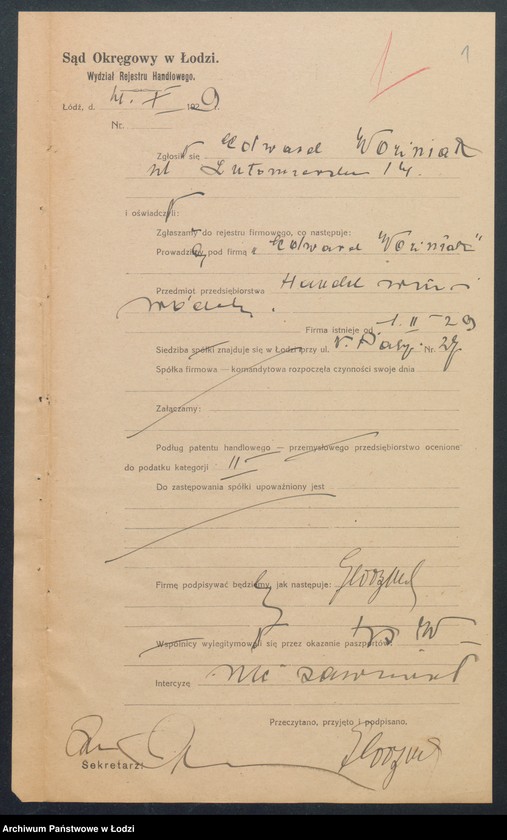 Sąd Okręgowy w Łodzi.
Wydział Rejestru Handlowego.
Łódź, d. 1929 r.
Nr.
1
Zgłosił się Edward Woźniak
Lutomierska 14.
i oświadczyli:
Zgłaszamy do rejestru firmowego, co następuje:
Prowadzimy pod firmą „Edward Woźniak"
Przedmiot przedsiębiorstwa Handel win i
wódek.
Firma istnieje od 1.II-29
Siedziba spółki znajduje się w Łodzi przy ul. Nr. 27
Spółka firmowa — komandytowa rozpoczęła czynności swoje dnia
Załączamy:
Podług patentu handlowego — przemysłowego przedsiębiorstwo ocenione
do podatku kategorji II
Do zastępowania spółki upoważniony jest
Firmę podpisywać będziemy, jak następuje: EWoźniak
Wspólnicy wylegitymowali się przez okazanie paszportów.
Intercyzę nie zawierał
Przeczytano, przyjęto i podpisano.
Sekretarz: EWoźniak
Archiwum Państwowe w Łodzi